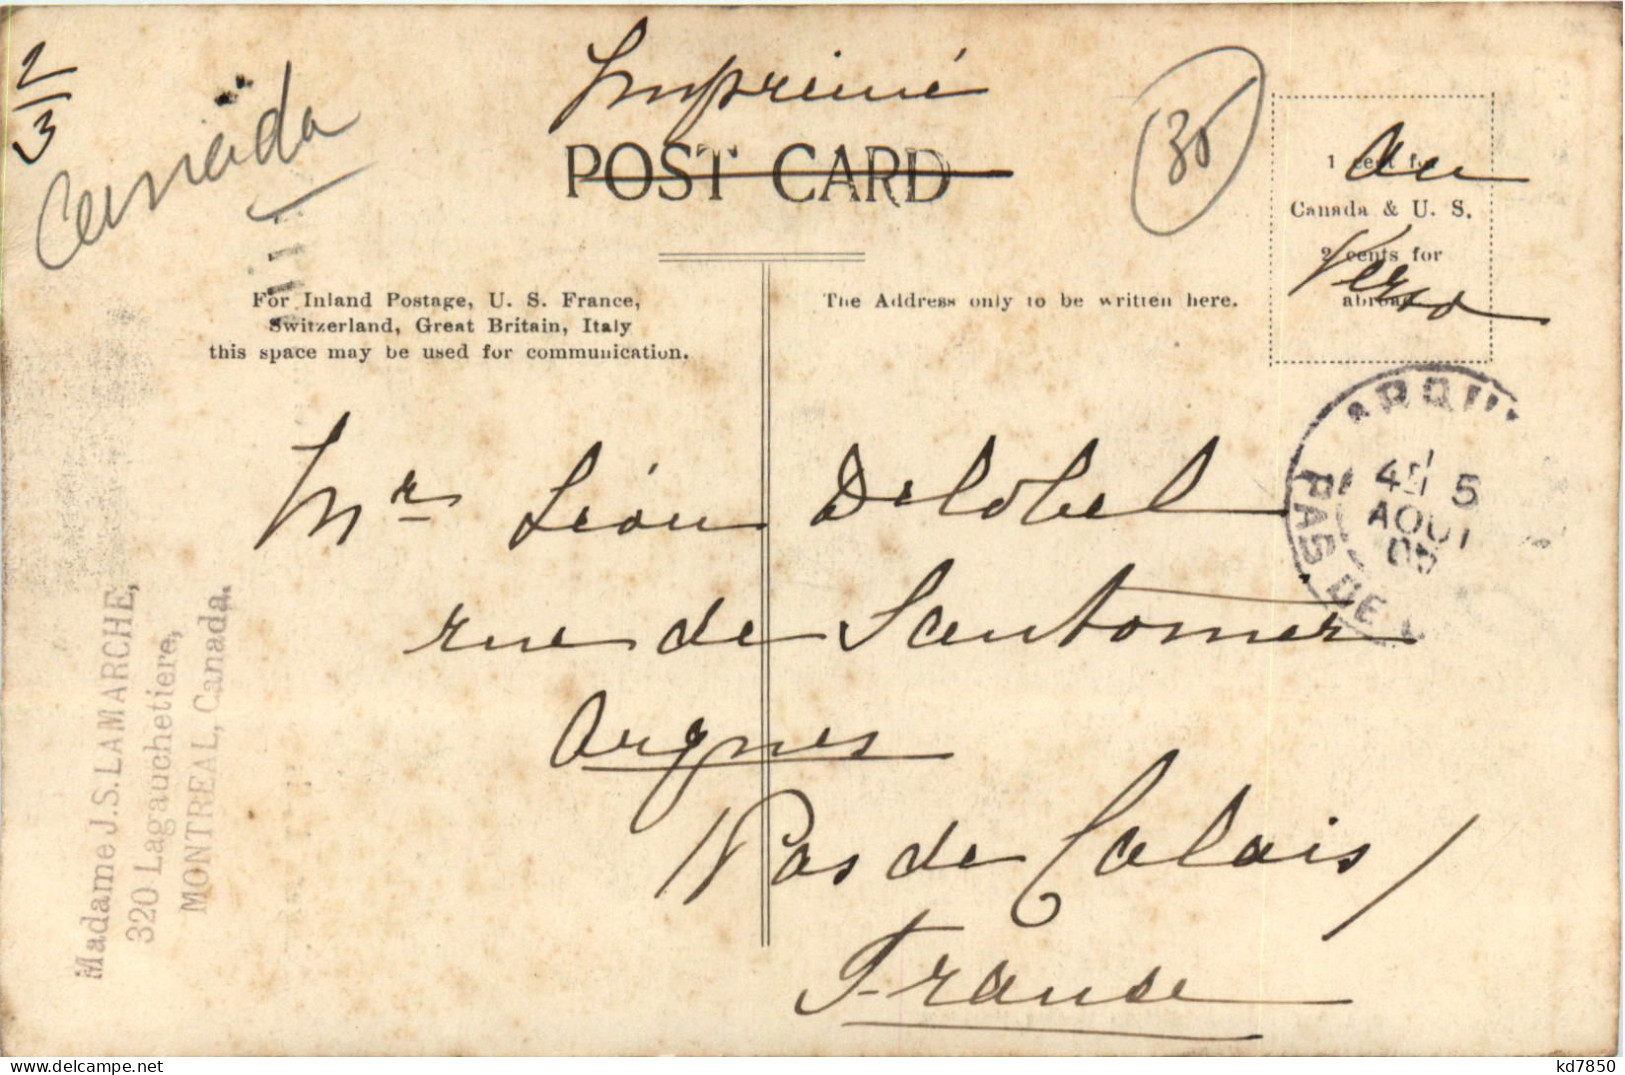 2/3
Canada
Imprimé
POST CARD
35
1 cent for
Canada & U. S.
2 cents for
abroad
au
Verso
For Inland Postage, U. S. France,
Switzerland, Great Britain, Italy
this space may be used for communication.
The Address only to be written here.
ARQU
5
AOUT
PAS DE
Mr Léon Delobel
rue de Saintomer
Arques
Pas de Calais
France
Madame J.S. LAMARCHE,
320 Lagauchetiere,
MONTREAL, Canada.
delcampe.net
kd7850